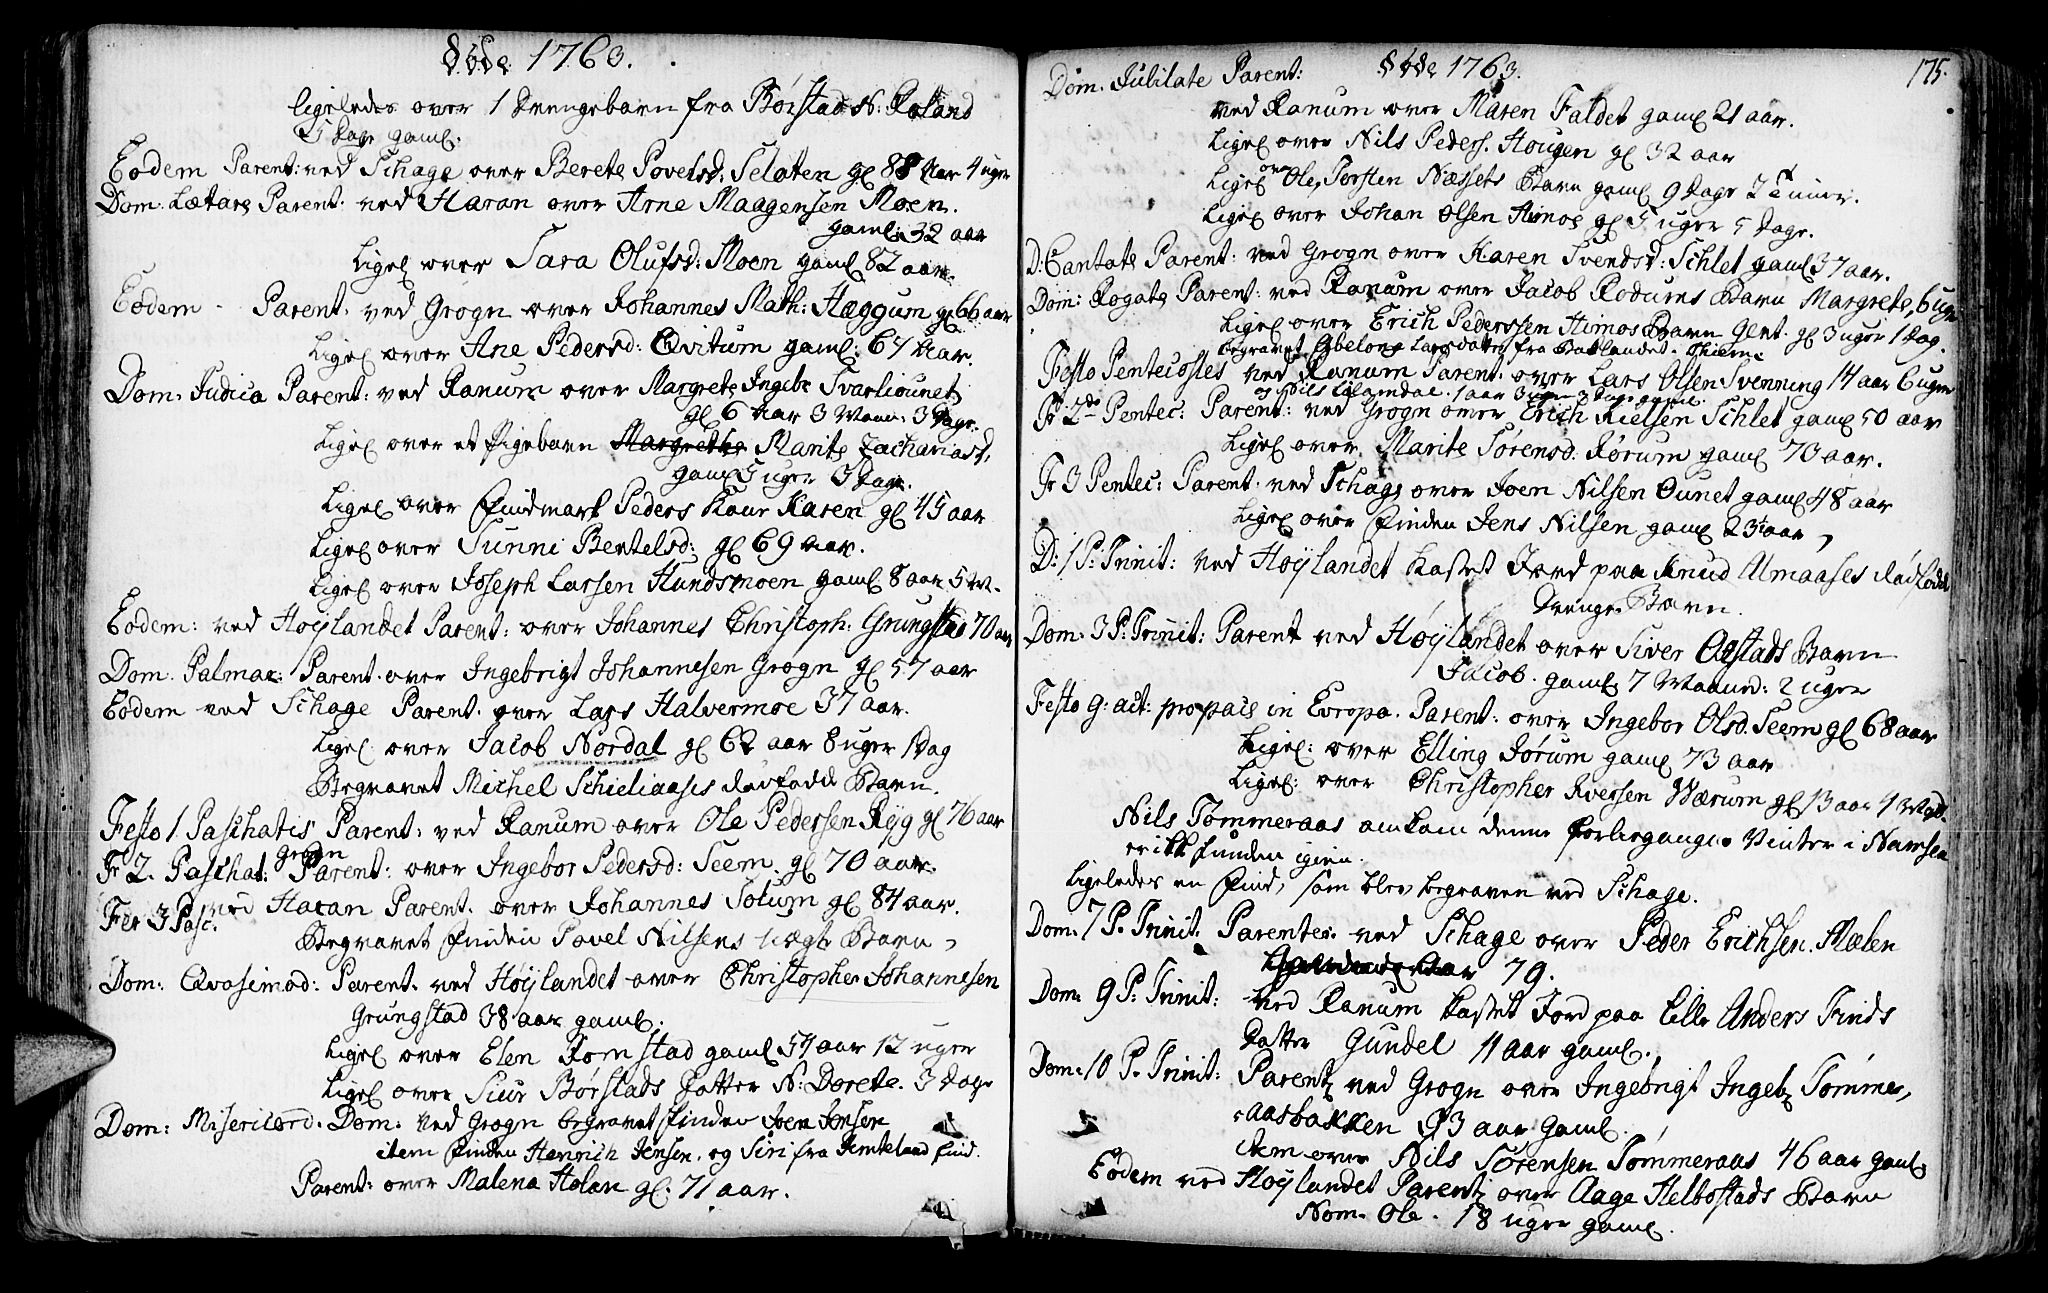 Døde 1763.
ligeledes over 1 Drengebarn fra Børstad N: Roland
25 Dage gaml.
Eodem Parent: ved Schage over Berete Povelsd. Seloten gl 88 Aar 4 uger
Dom. Lætare Parent. ved Haran over Arne Maagensen Moen.
gaml. 32 aar
Ligel over Sara Olufsd: Moen gaml 82 aar.
Eodem - Parent. ved Grogn over Johannes Math: Hæggum gl 66 aar
Ligel over Ane Pedersd: Qvitum gaml. 67 Aar.
Dom. Judica Parent: ved Ranum over Margrete Ingebr Svarliounet
gl 6 Aar 3 Maan: 3 Dage.
Ligel over et Pigebarn Margrethe Marite Zachariasd.
gaml 5 uger 3 Dage.
Ligel over Findmark Peders Kone Karen gl 45 aar
Ligel over Sunni Bentelsd: gl 69 Aar.
Ligel over Joseph Larsen Hundsmoen gaml 8 aar 5 M.
Eodem: ved Høylandet Parent: over Johannes Christoph: Grungstad 70 aar
Dom. Palmar: Parent. over Ingebrigt Johannesen Grogn gl 57 aar
Eodem ved Schage Parent. over Lars Halvermoe 37 aar.
Ligel. over Jacob Nordal gl 62 aar 8 uger 1 Dag
Begravet Michel Schieliaases dødfødde Barn.
Festo 1 Paschatis Parent: ved Ranum over Ole Pedersen Ryg gl 76 aar
Fr 2. Paschat: Grogn Parent: over Ingebor Pedersd: Seem. gl 70 aar.
Fer 3 Pasc. ved Haran Parent. over Johannes Solum gl 84 aar.
Begravet Finden Povel Nilsens uægte Barn,
Dom: Qvasimod: Parent. ved Høylandet over Christopher Johannesen
Grungstad 38 aar gaml.
Ligel over Elen Romstad gaml 54 aar 12 uger
Ligel over Siur Børstads Datter N: Dorete. 3 Dage
Dom: Misericord. Dom: ved Grogn begravet Finden Joen Jonsen
item Finden Henrich Jensen, og Siri fra Jemteland Find.
Parent: over Malena Holan gl. 71 aar.
Døde 1763.
175.
Dom. Jubilate Parent:
ved Ranum over Maren Faldet gaml 21 aar.
Ligel over Nils Peders. Hougen gl 32 aar
Ligel over Ole Torsten Næssets Barn gaml 9 Dage 2 Timer.
Ligel over Johan Olsen Himoe gl 5 uger 5 Dage.
D: Cantate Parent: ved Grogn over Karen Svendsd: Schlet gaml 37 aar.
Dom: Rogate Parent: ved Ranum over Jacob Rodums Barn Margrete, 6 uger
Ligel over Erich Pederssen Himos Barn Gent. gl 3 uger 1 Dag.
begravet Abelona Larsdatter fra Baklandet.
Festo Pentecostes ved Ranum Parent. over Lars Olsen Svenning 14 aar 6 uger
og Nils 1 aar 3 uger
Fr 2de Pentec: Parent: ved Grogn over Erich Nielsen Schlet gaml 50 aar
Ligel over. Marite Sørensd: Rørum gaml 73 aar.
Fr 3 Pentec: Parent. ved Schage over Joen Nilsen Ounet gaml 48 aar
Ligel over Finden Jens Nilsen gaml 23 aar,
D: 1 P: Trinit: ved Høylandet kastet Jord paa Knud Umaases dødfødde
Drenge-Barn.
Dom. 3 P: Trinit: Parent ved Høylandet over Siver Aastads Barn
Jacob. gaml. 7 Maaned: 2 uger
Festo g: act: pro pace in Evropa. Parent: over Ingebor Olsd. Seem gl 68 aar
Ligel: over Elling Jørum gaml 73 aar
Ligel: over Christopher Iversen Wærum gl 13 aar 4
Nils Tømmeraas omkom denne forbigangne Vinter i Namsen
er ikke funden igien.
Ligeledes en Find, som blev begraven ved Schage.
Dom. 7 P. Trinit. Parenter. ved Schage over Peder Erichsen. Mælen
79.
Dom. 9 P: Trinit: ved Ranum kastet Jord paa Lille Anders Finds
Datter Gundel 11 aar gaml.
Dom: 10 P. Trinit: Parent ved Grogn over Ingebrigt Ingeb Tømmer,
aasbakken 93 aar gaml.
item over Nils Sørensen Tømmeraas 46 aar gaml.
Eodem ved Høylandet Parent over Aage Helbostads Barn
Nom. Ole. 18 uger gaml.